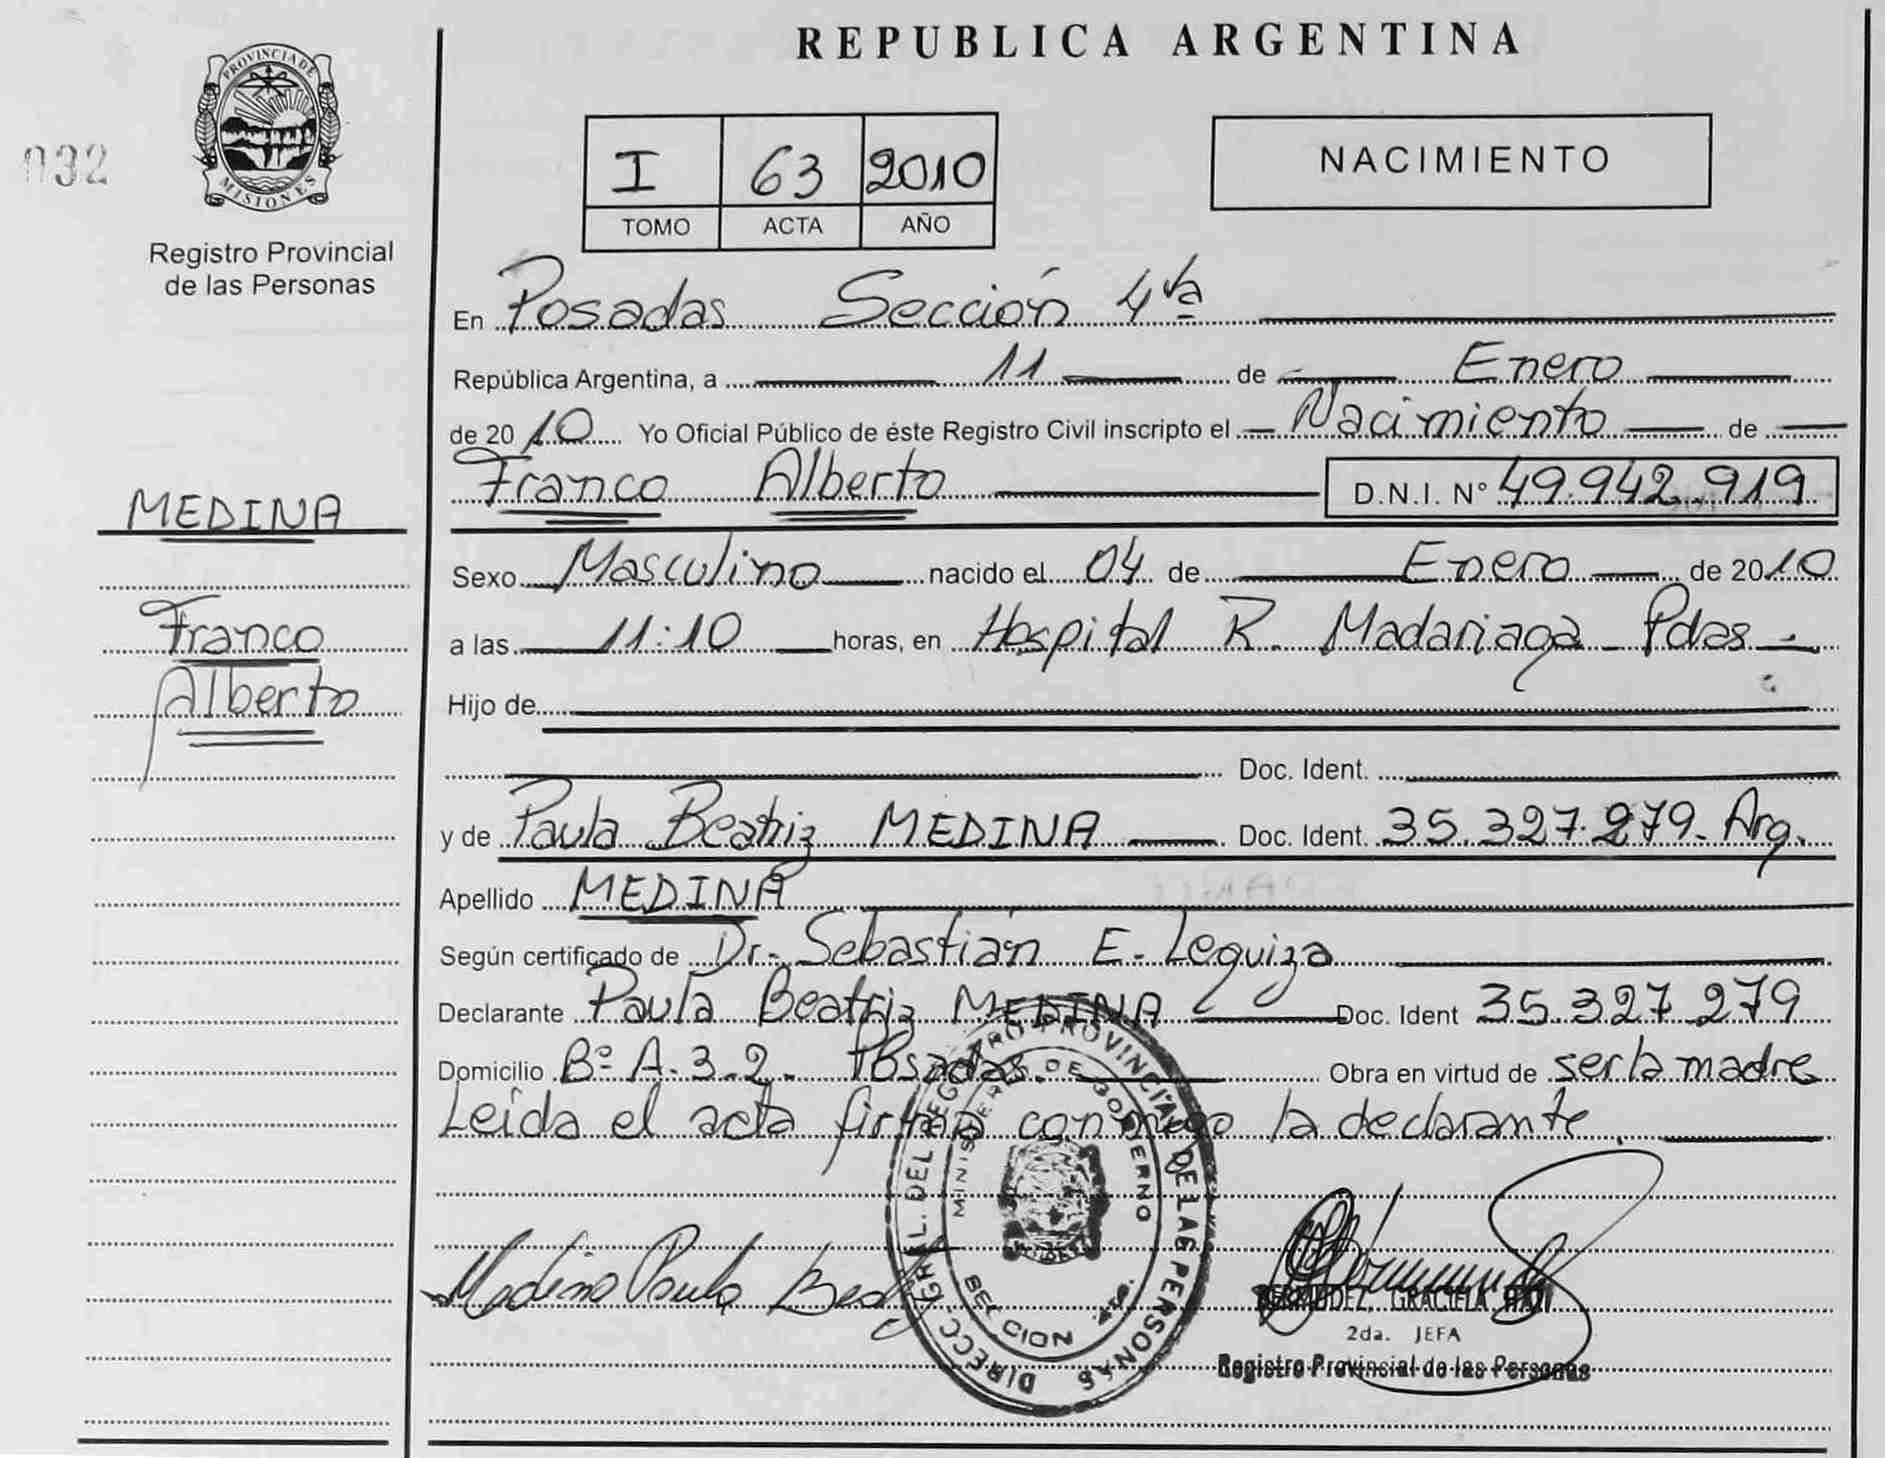 REPUBLICA ARGENTINA
PROVINCIA DE
MISIONES
032
Registro Provincial
de las Personas
I 63 2010
TOMO ACTA AÑO
NACIMIENTO
En Posadas Sección 4ta
República Argentina, a 11 de Enero
de 2010 Yo Oficial Público de éste Registro Civil inscripto el Nacimiento de
Franco Alberto D.N.I. Nº 49.942.919
MEDINA
Franco
Alberto
Sexo Masculino nacido el 04 de Enero de 2010
a las 11:10 horas, en Hospital R. Madariaga Pdas
Hijo de
Doc. Ident.
y de Paula Beatriz MEDINA Doc. Ident. 35.327.279. Arg.
Apellido MEDINA
Según certificado de Dr. Sebastián E. Leguiza
Declarante Paula Beatriz MEDINA Doc. Ident 35.327.279
Domicilio Bº A.3.2. Posadas. Obra en virtud de ser la madre
Leída el acta firma conmigo la declarante.
DIRECC. GRAL. DEL REGISTRO PROVINCIAL DE LAS PERSONAS
MINISTERIO DE GOBIERNO
SECCION 4ta.
Medina Paula
BERMUDEZ, GRACIELA
2da. JEFA
Registro Provincial de las Personas